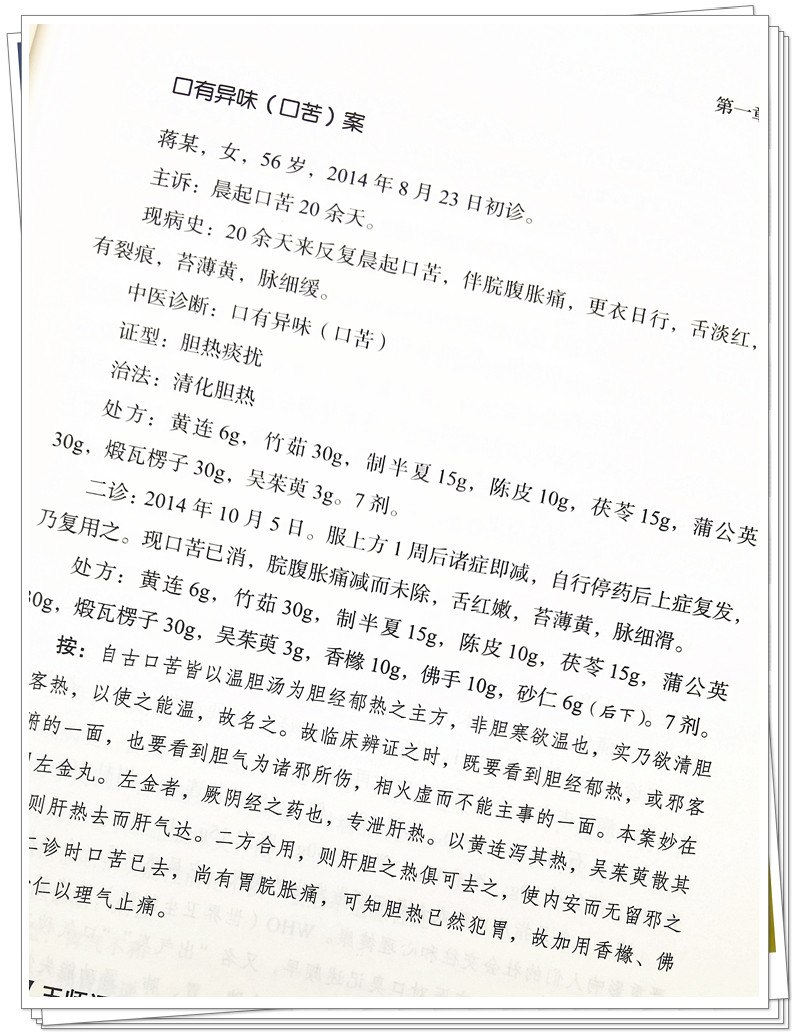 第一章
口有异味（口苦）案
蒋某，女，56岁，2014年8月23日初诊。
主诉：晨起口苦20余天。
现病史：20余天来反复晨起口苦，伴脘腹胀痛，更衣日行，舌淡红，
有裂痕，苔薄黄，脉细缓。
中医诊断：口有异味（口苦）
证型：胆热痰扰
治法：清化胆热
处方：黄连6g，竹茹30g，制半夏15g，陈皮10g，茯苓15g，蒲公英
30g，煅瓦楞子30g，吴茱萸3g。7剂。
二诊：2014年10月5日。服上方1周后诸症即减，自行停药后上症复发，
乃复用之。现口苦已消，脘腹胀痛减而未除，舌红嫩，苔薄黄，脉细滑。
处方：黄连6g，竹茹30g，制半夏15g，陈皮10g，茯苓15g，蒲公英
30g，煅瓦楞子30g，吴茱萸3g，香橼10g，佛手10g，砂仁6g（后下）。7剂。
按：自古口苦皆以温胆汤为胆经郁热之主方，非胆寒欲温也，实乃欲清胆
客热，以使之能温，故名之。故临床辨证之时，既要看到胆经郁热，或邪客
的一面，也要看到胆气为诸邪所伤，相火虚而不能主事的一面。本案妙在
左金丸。左金者，厥阴经之药也，专泄肝热。以黄连泻其热，吴茱萸散其
则肝热去而肝气达。二方合用，则肝胆之热俱可去之，使内安而无留邪之
二诊时口苦已去，尚有胃脘胀痛，可知胆热已然犯胃，故加用香橼、佛
仁以理气止痛。